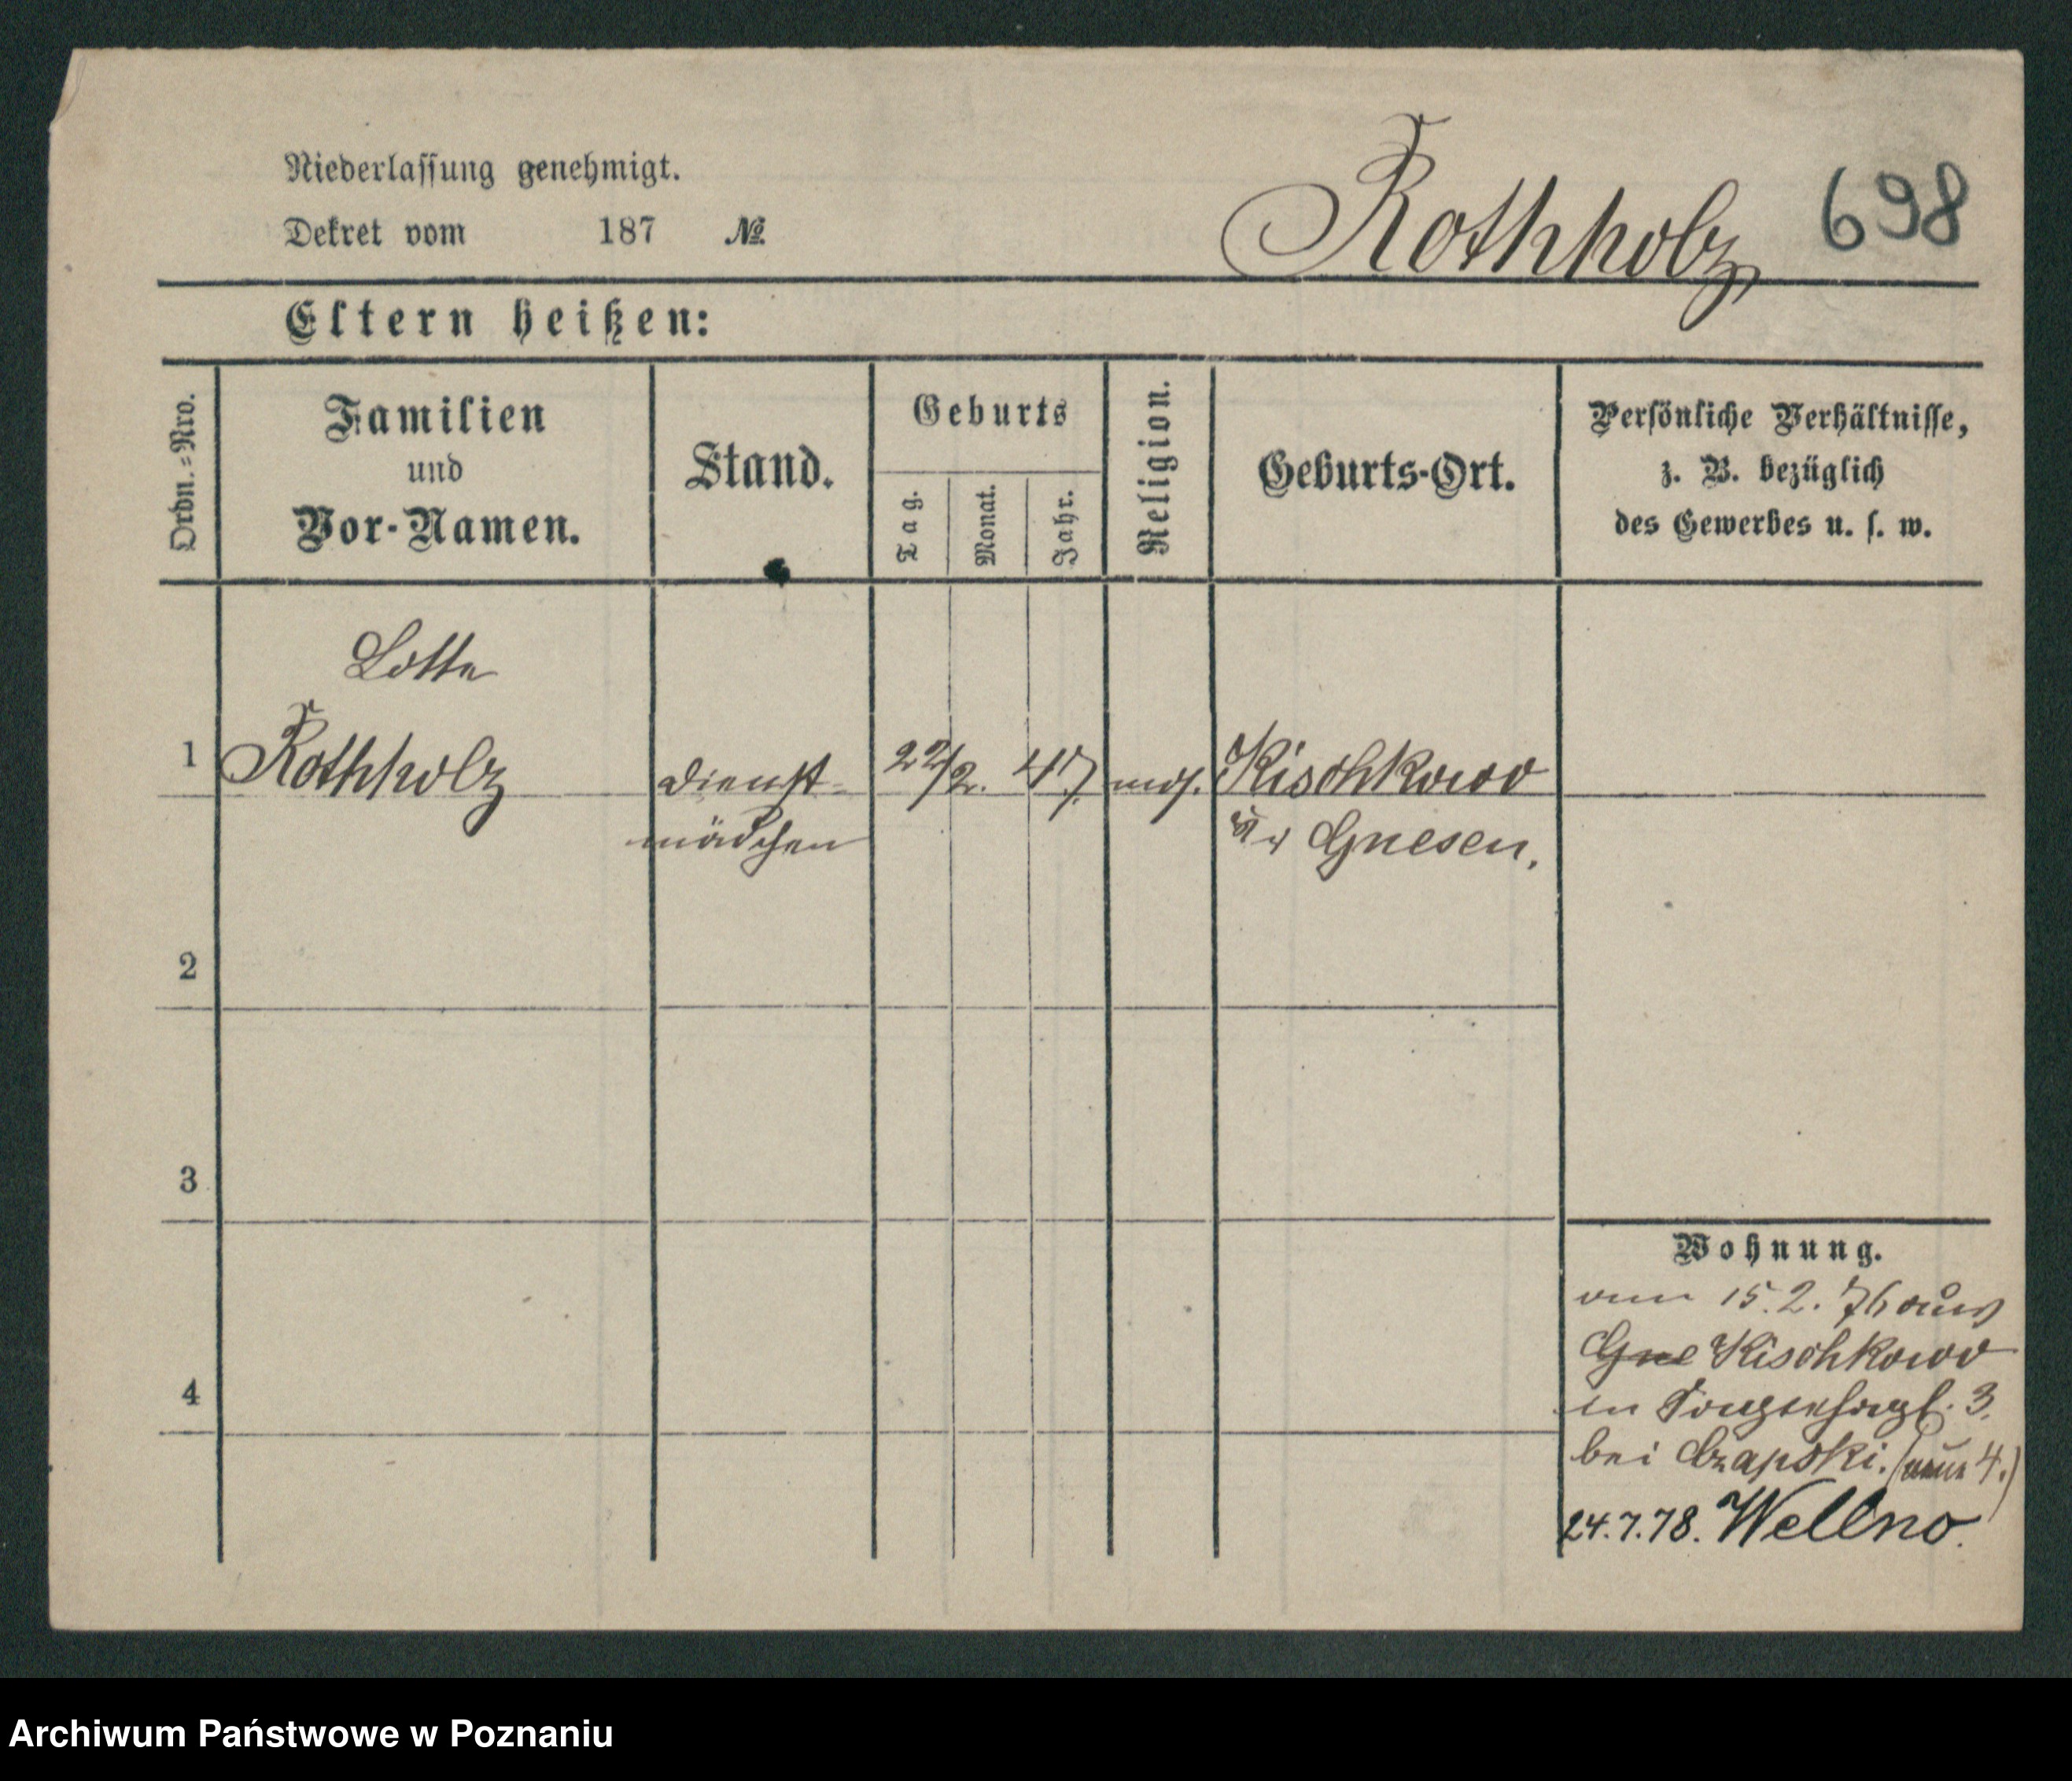 Niederlassung genehmigt.
Dekret vom 187 №
Rothholz 698
Eltern heißen:
Ordn.=Nro.
Familien
und
Vor-Namen.
Stand.
Geburts
Tag.
Monat.
Jahr.
Religion.
Geburts-Ort.
Persönliche Verhältnisse,
z. B. bezüglich
des Gewerbes u. s. w.
Lotte
1 Rothholz Dienst- 22/2. 47. mos. Kischkowo
mädchen Kr Gnesen.
2
3
4
Wohnung.
vom 15.2.76 aus
Gne Kischkowo
in 3.
bei Czapski. (neue 4.)
24.7.78. Wellno.
Archiwum Państwowe w Poznaniu